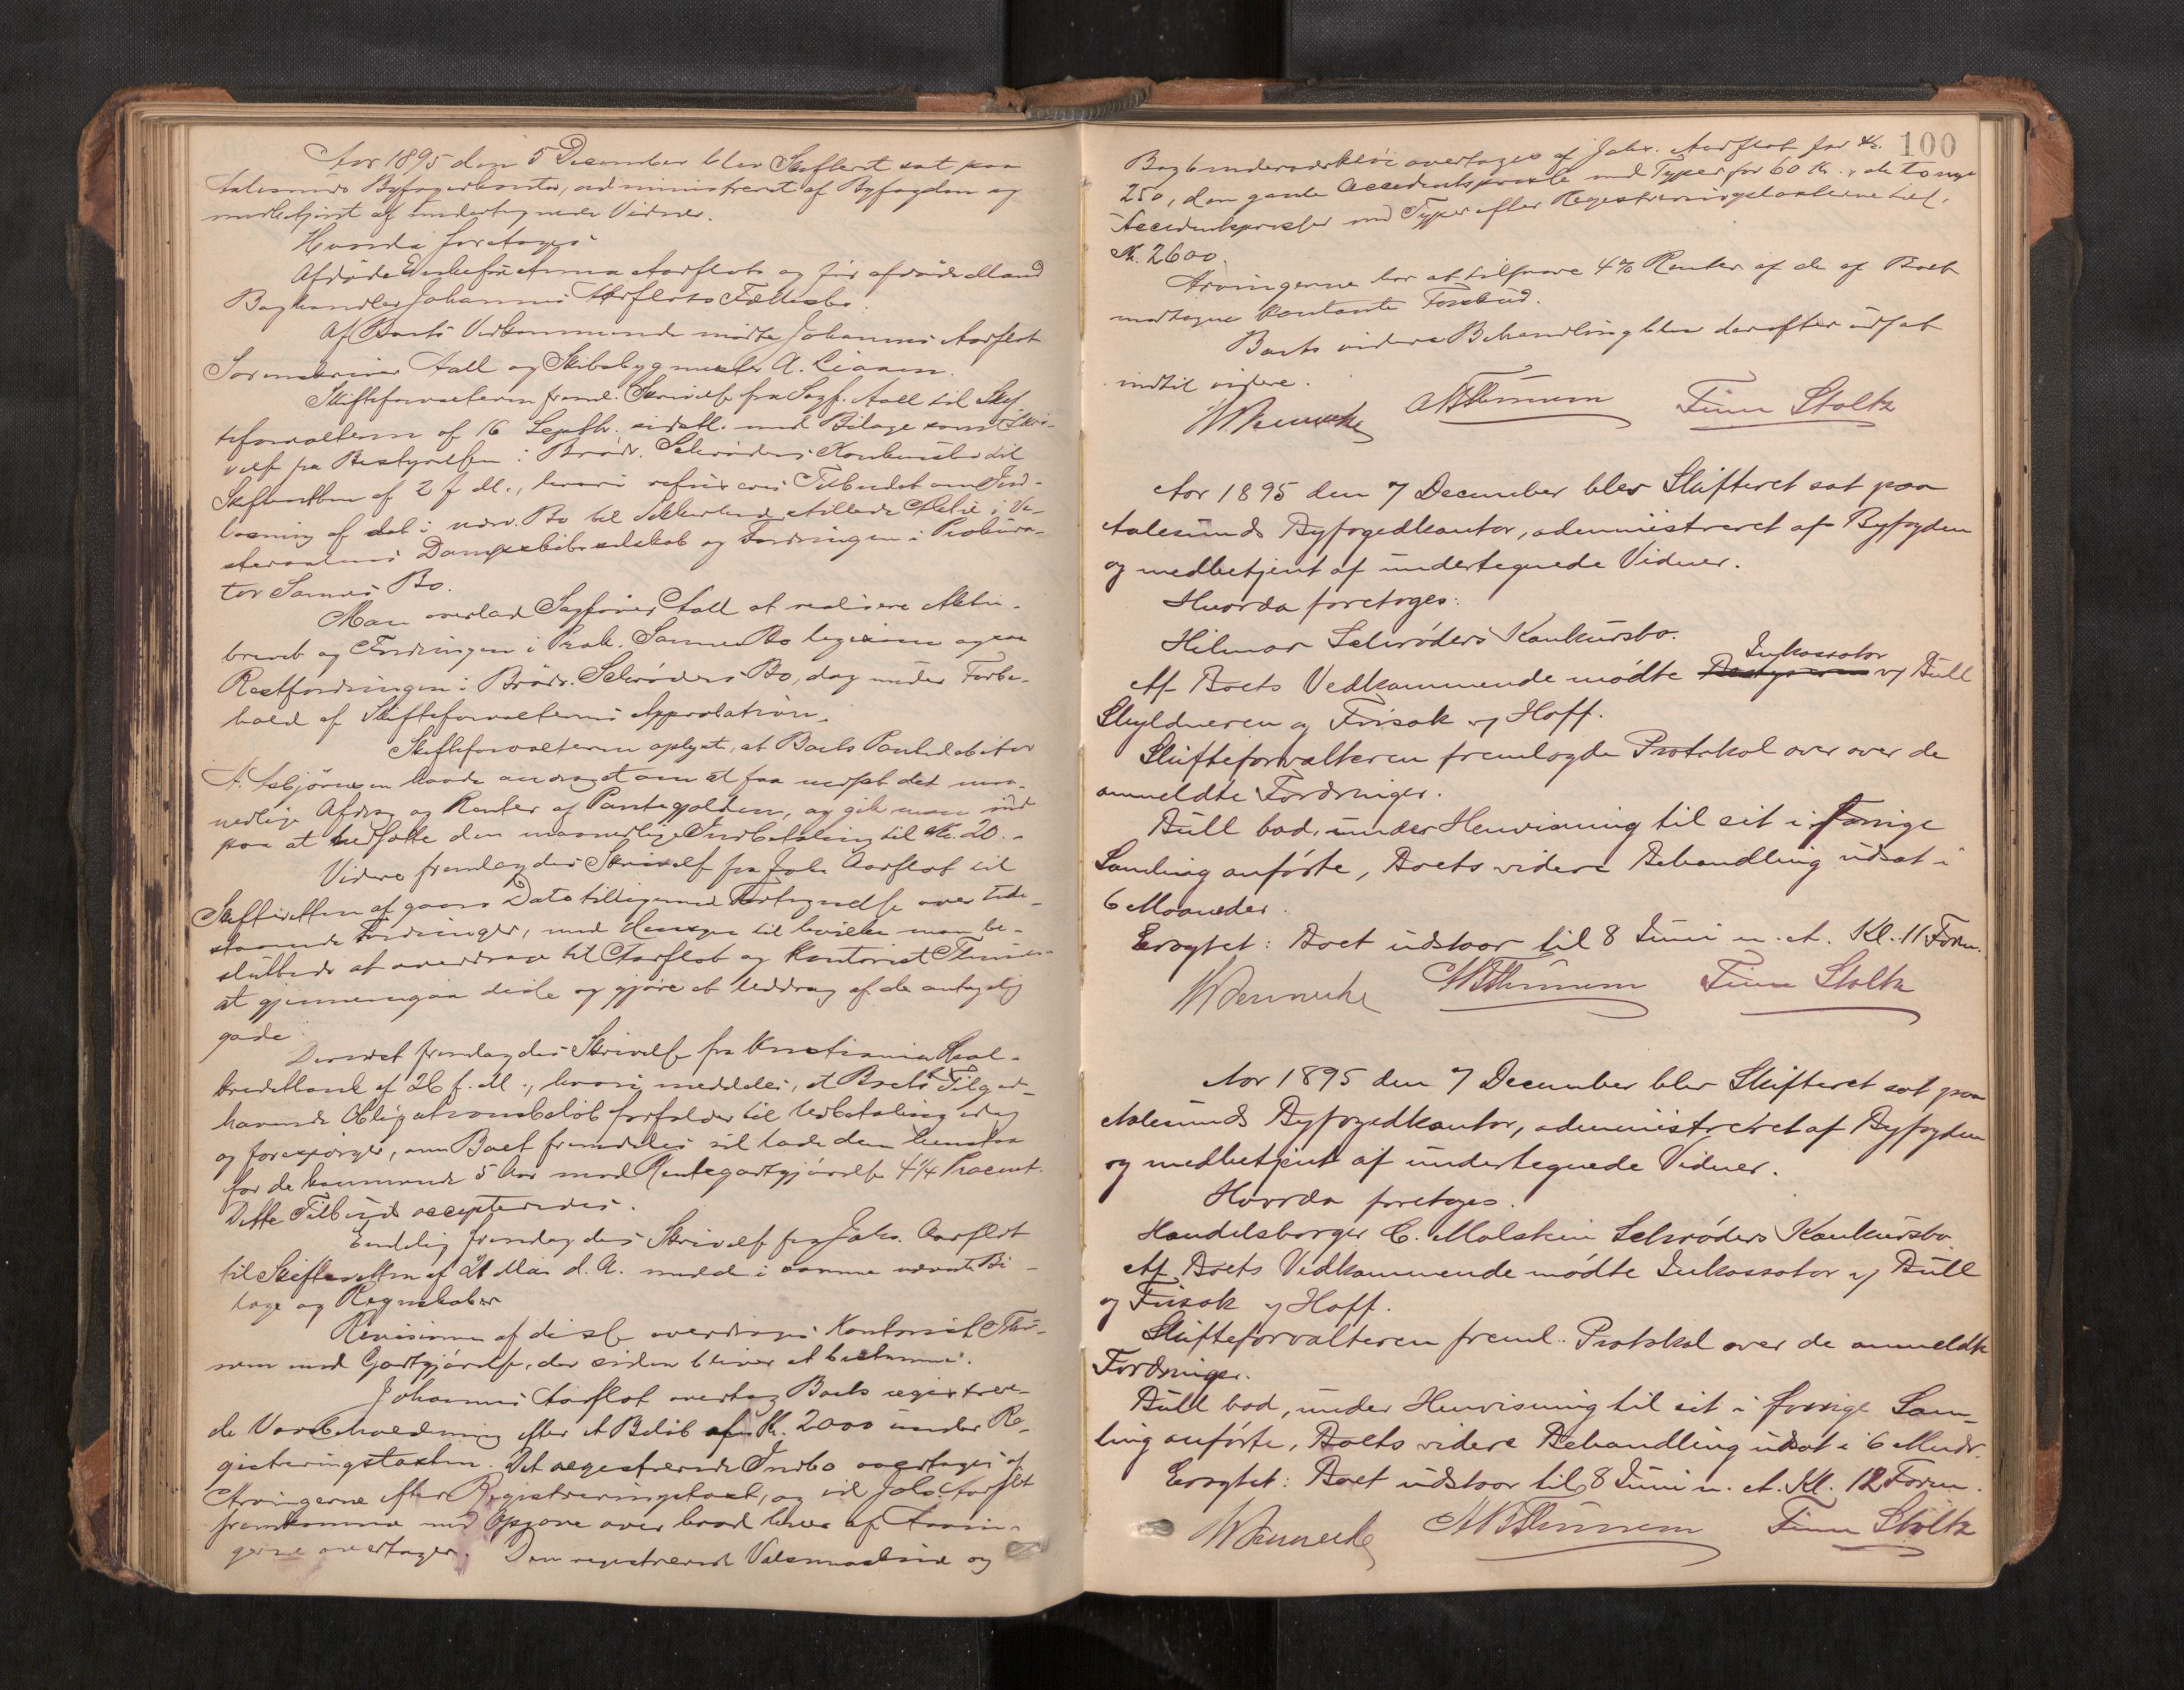 Aar 1895 den 5 December blev Skifteret sat paa
Aalesunds Byfogedkontor, administreret af Byfogden og
medbetjent af undertegnede Vidner.
Hvorda foretoges:
Afdøde Enkefru Anna Aarflots og før afdøde Mand
Boghandler Johannes Aarflots Fællesbo.
Af Boets Vedkommende mødte Johannes Aarflot
Sorenskriver Aall og Skibsbygmester A. Liaaen.
Skifteforvalteren freml. Skrivelse fra Sagf. Aall til Skif-
teforvalteren af 16 Septbr. sidstl. med Bilage samt Skri-
velse fra Bestyrelsen i Brødr. Schrøders Konkursbo til
Skifteretten af 2 f. M., hvori refuseres Tilbudet om Ind-
løsning af det i nævn. Bo til Sikkerhed stillede Aktie i Ve-
steraalens Dampskibsselskab og Fordringen i Prokura-
tor Sannes Bo.
Man overlod Sagfører Aall at realisere Aktie-
brevet og Fordringen i Prok. Sannes Bo ligesom ogsaa
Restfordringen i Brødr. Schrøders Bo, dog under Forbe-
hold af Skifteforvalterens Approbation.
Skifteforvalteren oplyste, at Boets Pantedebitor
A. Asbjørnsen havde andraget om at faa nedsat det maa-
nedlige Afdrag og Renter af Pantegjælden, og gik man ind
paa at nedsætte den maanedlige Indbetaling til Kr. 20.-
Videre fremlagdes Skrivelse fra Johs. Aarflot til
Skifteretten af gaars Dato tilligemed Fortegnelse over ude-
staaende Fordringer, med Hensyn til hvilke man be-
sluttede at overdrage til Aarflot og Kontorist Thunem
at gjennemgaa disse og gjøre et Uddrag af de antagelig
gode.
Dernæst fremlagdes Skrivelse fra Kristiania Real-
kreditbank af 26 f. M., hvori meddeles, at Boets Tilgode-
havende Obligationsbeløb forfalder til Udbetaling idag
og forespørges, om Boet fremdeles vil lade dem henstaa
for de kommende 5 Aar mod Rentegodtgjørelse 4 1/4 Procent.
Dette Tilbud accepteredes.
Endelig fremlagdes Skrivelse fra Johs. Aarflot
til Skifteretten af 21 Mai d. A. med de i samme nævnte Bi-
lage og Regnskaber
Revisionen af disse overdroges Kontorist Thu-
nem mod Godtgjørelse, der siden bliver at bestemme.
Johannes Aarflot overtog Boets registrere-
de Varebeholdning efter et Beløb af Kr. 2000 under Re-
gistreringstaxten. Det registrerede Indbo overtages af
Arvingerne efter Registreringstaxt, og vil Johs. Aarflot
fremkomme med Opgave over hvad hver af Arvin-
gerne overtager. Den registrerede Valsemaskine og
100
overtages af Johs. Aarflot for Kr.
250, den gamle Accidentspresse med Typer for 60 Kr., de to nye
Accidentspresser med Typer efter Registreringstaxterne tils.
Kr. 2600.
Arvingerne har at tilsvare 4% Renter af de af Boet
modtagne kontante Forskud.
Boets videre Behandling blev derefter udsat
indtil videre.
MBThunem Finn Stoltz
Aar 1895 den 7 December blev Skifteret sat paa
Aalesunds Byfogedkontor, administreret af Byfogden
og medbetjent af undertegnede Vidner.
Hvorda foretoges:
Hilmar Schrøders Konkursbo.
Inkassator
Af Boets Vedkommende mødte Bestyreren v/ Bull
Skyldneren og Frisak v/ Hoff.
Skifteforvalteren fremlagde Protokol over over de
anmeldte Fordringer.
Bull bad, under Henvisning til sit i forrige
Samling anførte, Boets videre Behandling udsat i
6 Maaneder.
Eragtet: Boet udstaar til 8 Juni n. A. Kl. 11 Form.
MBThunem Finn Stoltz
Aar 1895 den 7 December blev Skifteret sat paa
Aalesunds Byfogedkontor, administreret af Byfogden
og medbetjent af undertegnede Vidner.
Hvorda foretoges.
Handelsborger C. Molstein Schrøders Konkursbo.
Af Boets Vedkommende mødte Inkassator v/ Bull
og Frisak v/ Hoff.
Skifteforvalteren freml. Protokol over de anmeldte
Fordringer.
Bull bad, under Henvisning til sit i forrige Sam-
ling anførte, Boets videre Behandling udsat i 6 Mndr.
Eragtet: Boet udstaar til 8 Juni n. A. Kl. 12 Form.
MBThunem Finn Stoltz